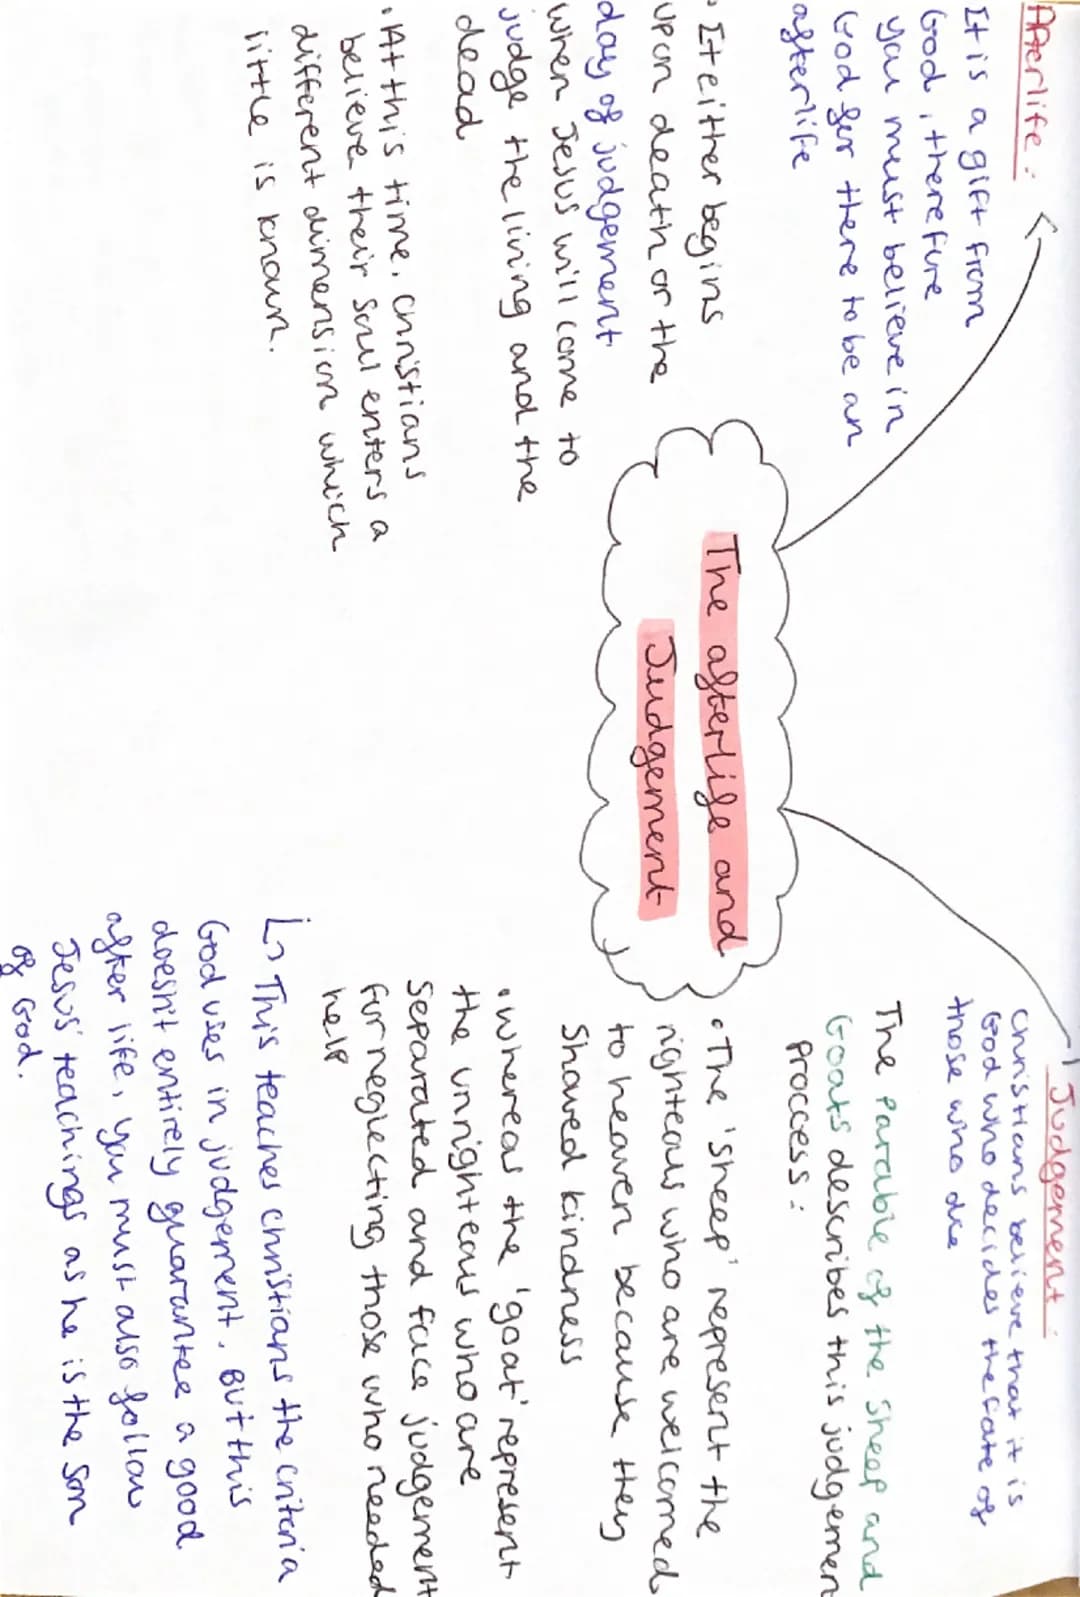 The afterlife and
Judgement
Afterlife:
It is a gift from
God, therefore
you must believe in
God for there to be an
afterlife
• It either begins
upon death or the
day of judgement
when Jesus will come to
judge the living and the
dead
• At this time, christians
believe their soul enters a
different dimension which
little is known.
Judgement:
Christians believe that it is
God who decides the fate of
those who die
The Parable of the Sheep and
Goats describes this judgemen
process:
• The 'sheep' represent the
righteous who are welcomed
to heaven because they
showed kindness
• whereas the 'goat' represent
the unrighteous who are
separated and face judgement
for neglecting those who needed
help
↳ This teaches christians the criteria
God uses in judgement. But this
doesn't entirely guarantee a good
after life, you must also follow
Jesus' teachings as he is the son
of God.